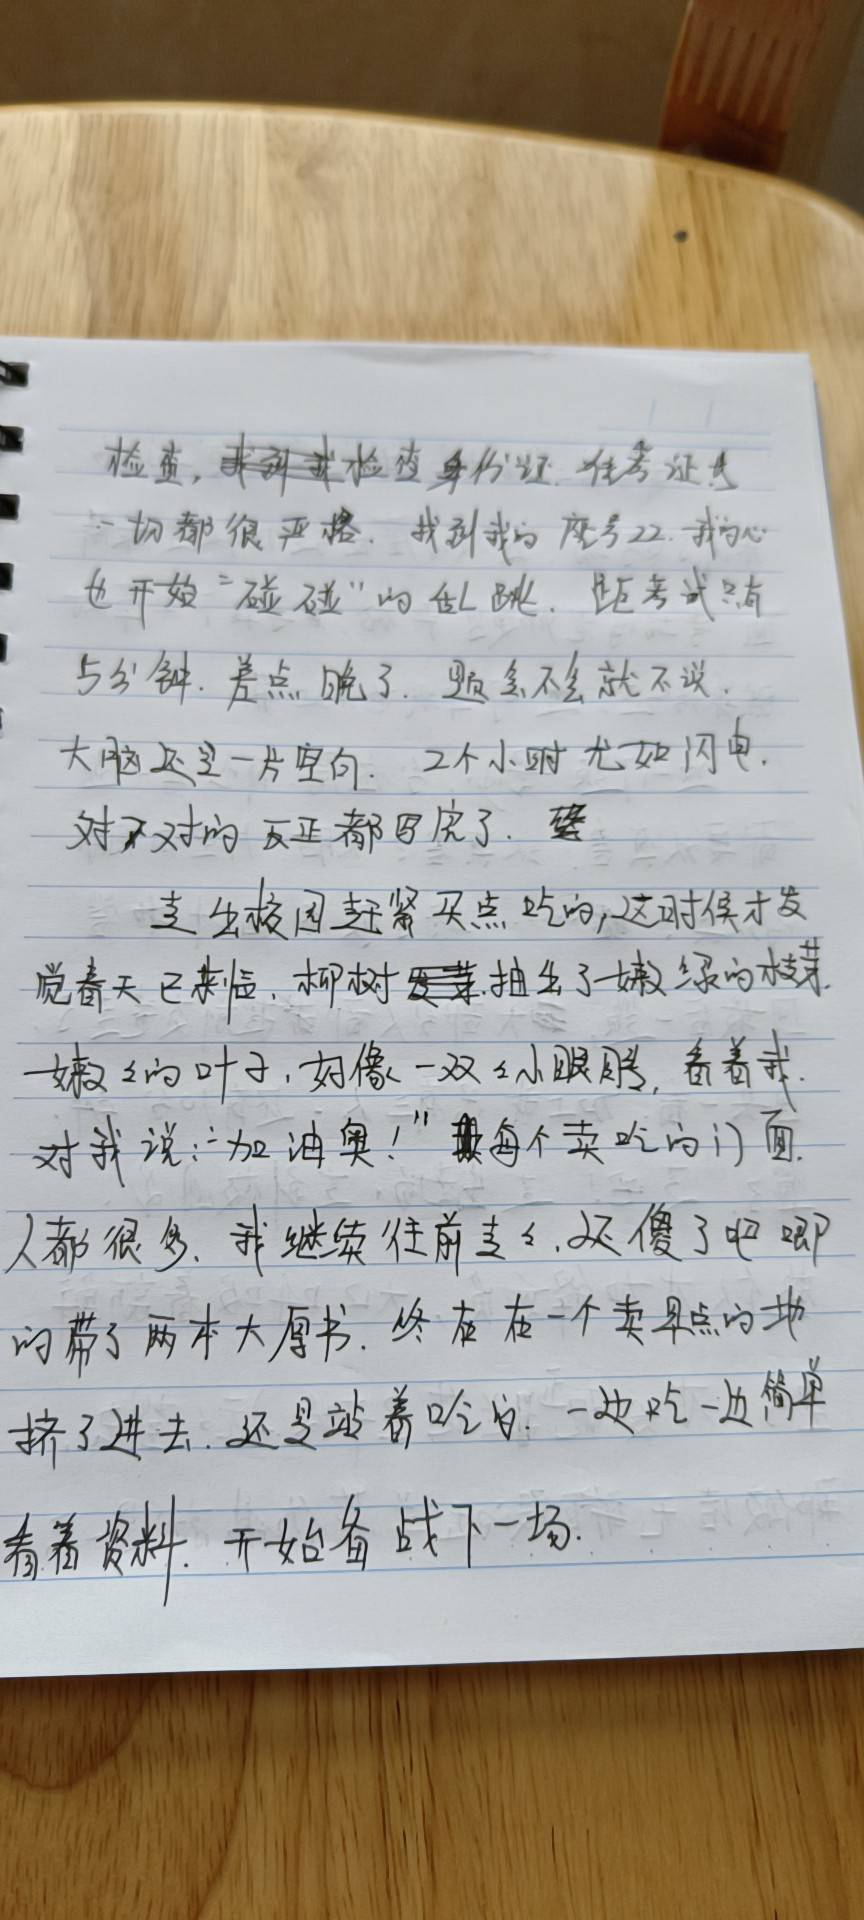 检查，检查身份证.准考证号
一切都很严格.找到我的座号22.我的心
也开始“碰碰”的乱跳.距考试只有
5分钟.差点晚了.题会不会就不说.
大脑还是一片空白.2个小时尤如闪电.
对不对的反正都写完了.
走出校园赶紧买点吃的,这时候才发
觉春天已来临.柳树抽出了嫩绿的枝芽.
嫩々的叶子,好像一双々小眼睛,看着我.
对我说:“加油奥!”每个卖吃的门面.
人都很多.我继续往前走々.还傻了吧唧
的带了两本大厚书.终在在一个卖早点的地
挤了进去.还是站着吃的.一边吃一边简单
看着资料.开始备战下一场.